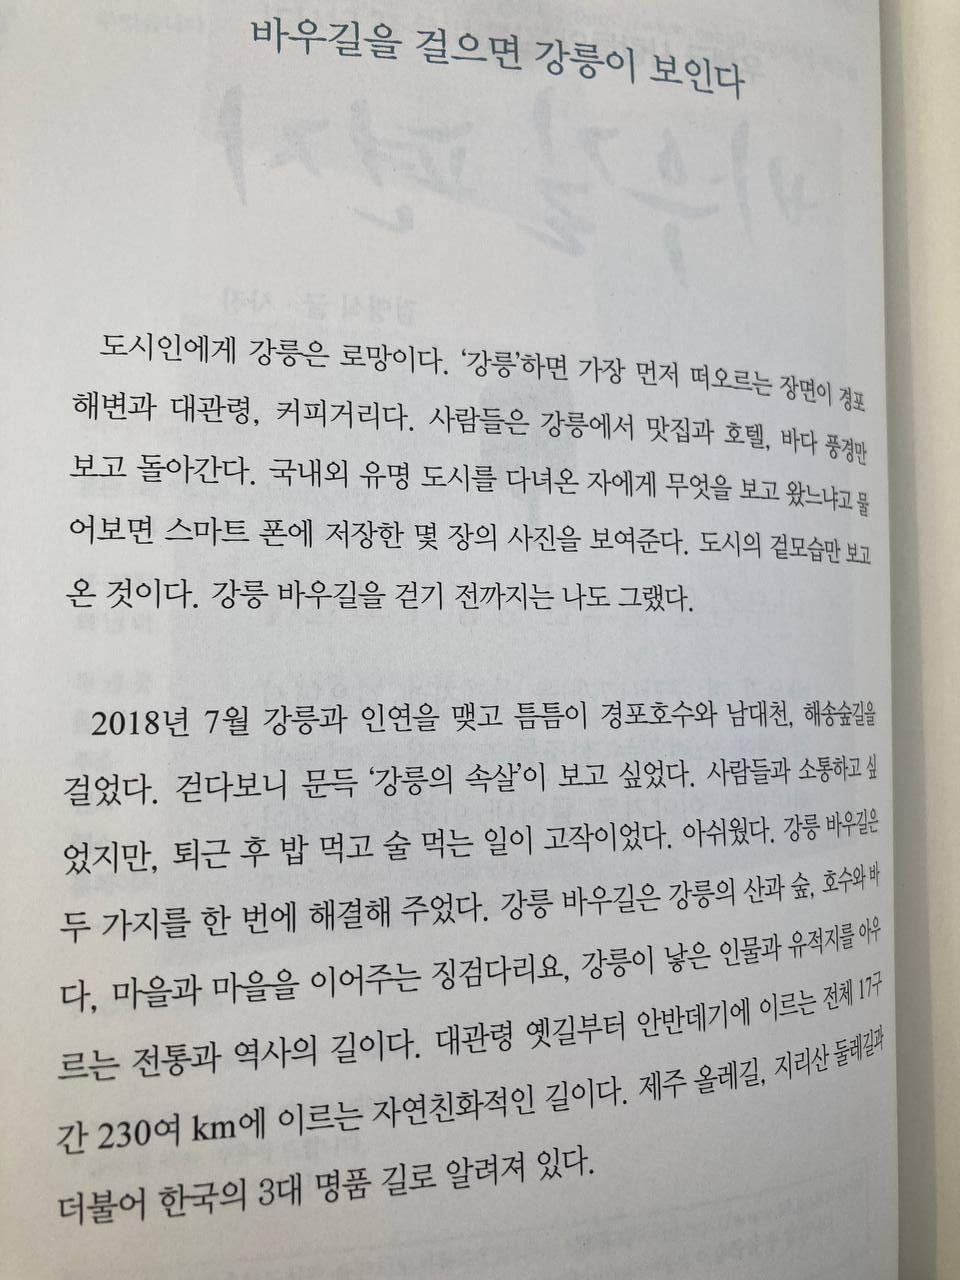 바우길을 걸으면 강릉이 보인다
도시인에게 강릉은 로망이다. ‘강릉’하면 가장 먼저 떠오르는 장면이 경포
해변과 대관령, 커피거리다. 사람들은 강릉에서 맛집과 호텔, 바다 풍경만
보고 돌아간다. 국내외 유명 도시를 다녀온 자에게 무엇을 보고 왔느냐고 물
어보면 스마트 폰에 저장한 몇 장의 사진을 보여준다. 도시의 겉모습만 보고
온 것이다. 강릉 바우길을 걷기 전까지는 나도 그랬다.
2018년 7월 강릉과 인연을 맺고 틈틈이 경포호수와 남대천, 해송숲길을
걸었다. 걷다보니 문득 ‘강릉의 속살’이 보고 싶었다. 사람들과 소통하고 싶
었지만, 퇴근 후 밥 먹고 술 먹는 일이 고작이었다. 아쉬웠다. 강릉 바우길은
두 가지를 한 번에 해결해 주었다. 강릉 바우길은 강릉의 산과 숲, 호수와 바
다, 마을과 마을을 이어주는 징검다리요, 강릉이 낳은 인물과 유적지를 아우
르는 전통과 역사의 길이다. 대관령 옛길부터 안반데기에 이르는 전체 17구
간 230여 km에 이르는 자연친화적인 길이다. 제주 올레길, 지리산 둘레길과
더불어 한국의 3대 명품 길로 알려져 있다.